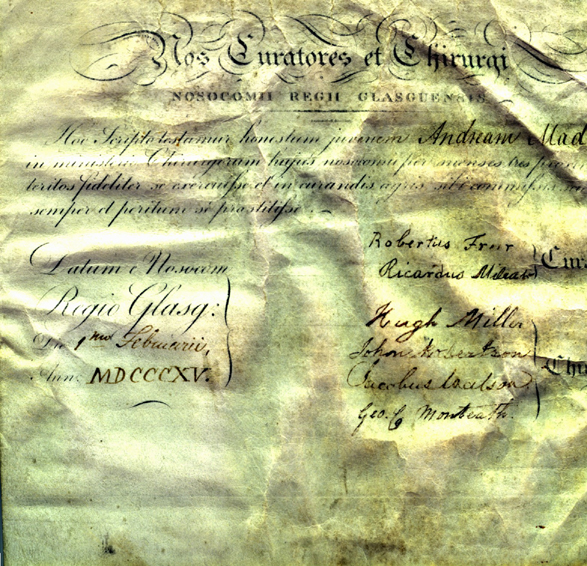 Nos Curatores et Chirurgi
NOSOCOMII REGII GLASGUENSIS
Hoc Scripto testamur honestum juvenem Andream Mad
in ministerio Chirurgorum hujus nosocomii per menses tres
teritos fideliter se exercuisse et in curandis ægris sibi commissis
semper et peritum se præstitisse.
Datum e Nosocom
Regio Glasg:
Die 1mo Februarii,
Anno MDCCCXV.
Robertus Freer
Ricardus
Cur
Hugh Miller
John Robertson
Jacobus Watson
Geo. C. Monteath.
Chi